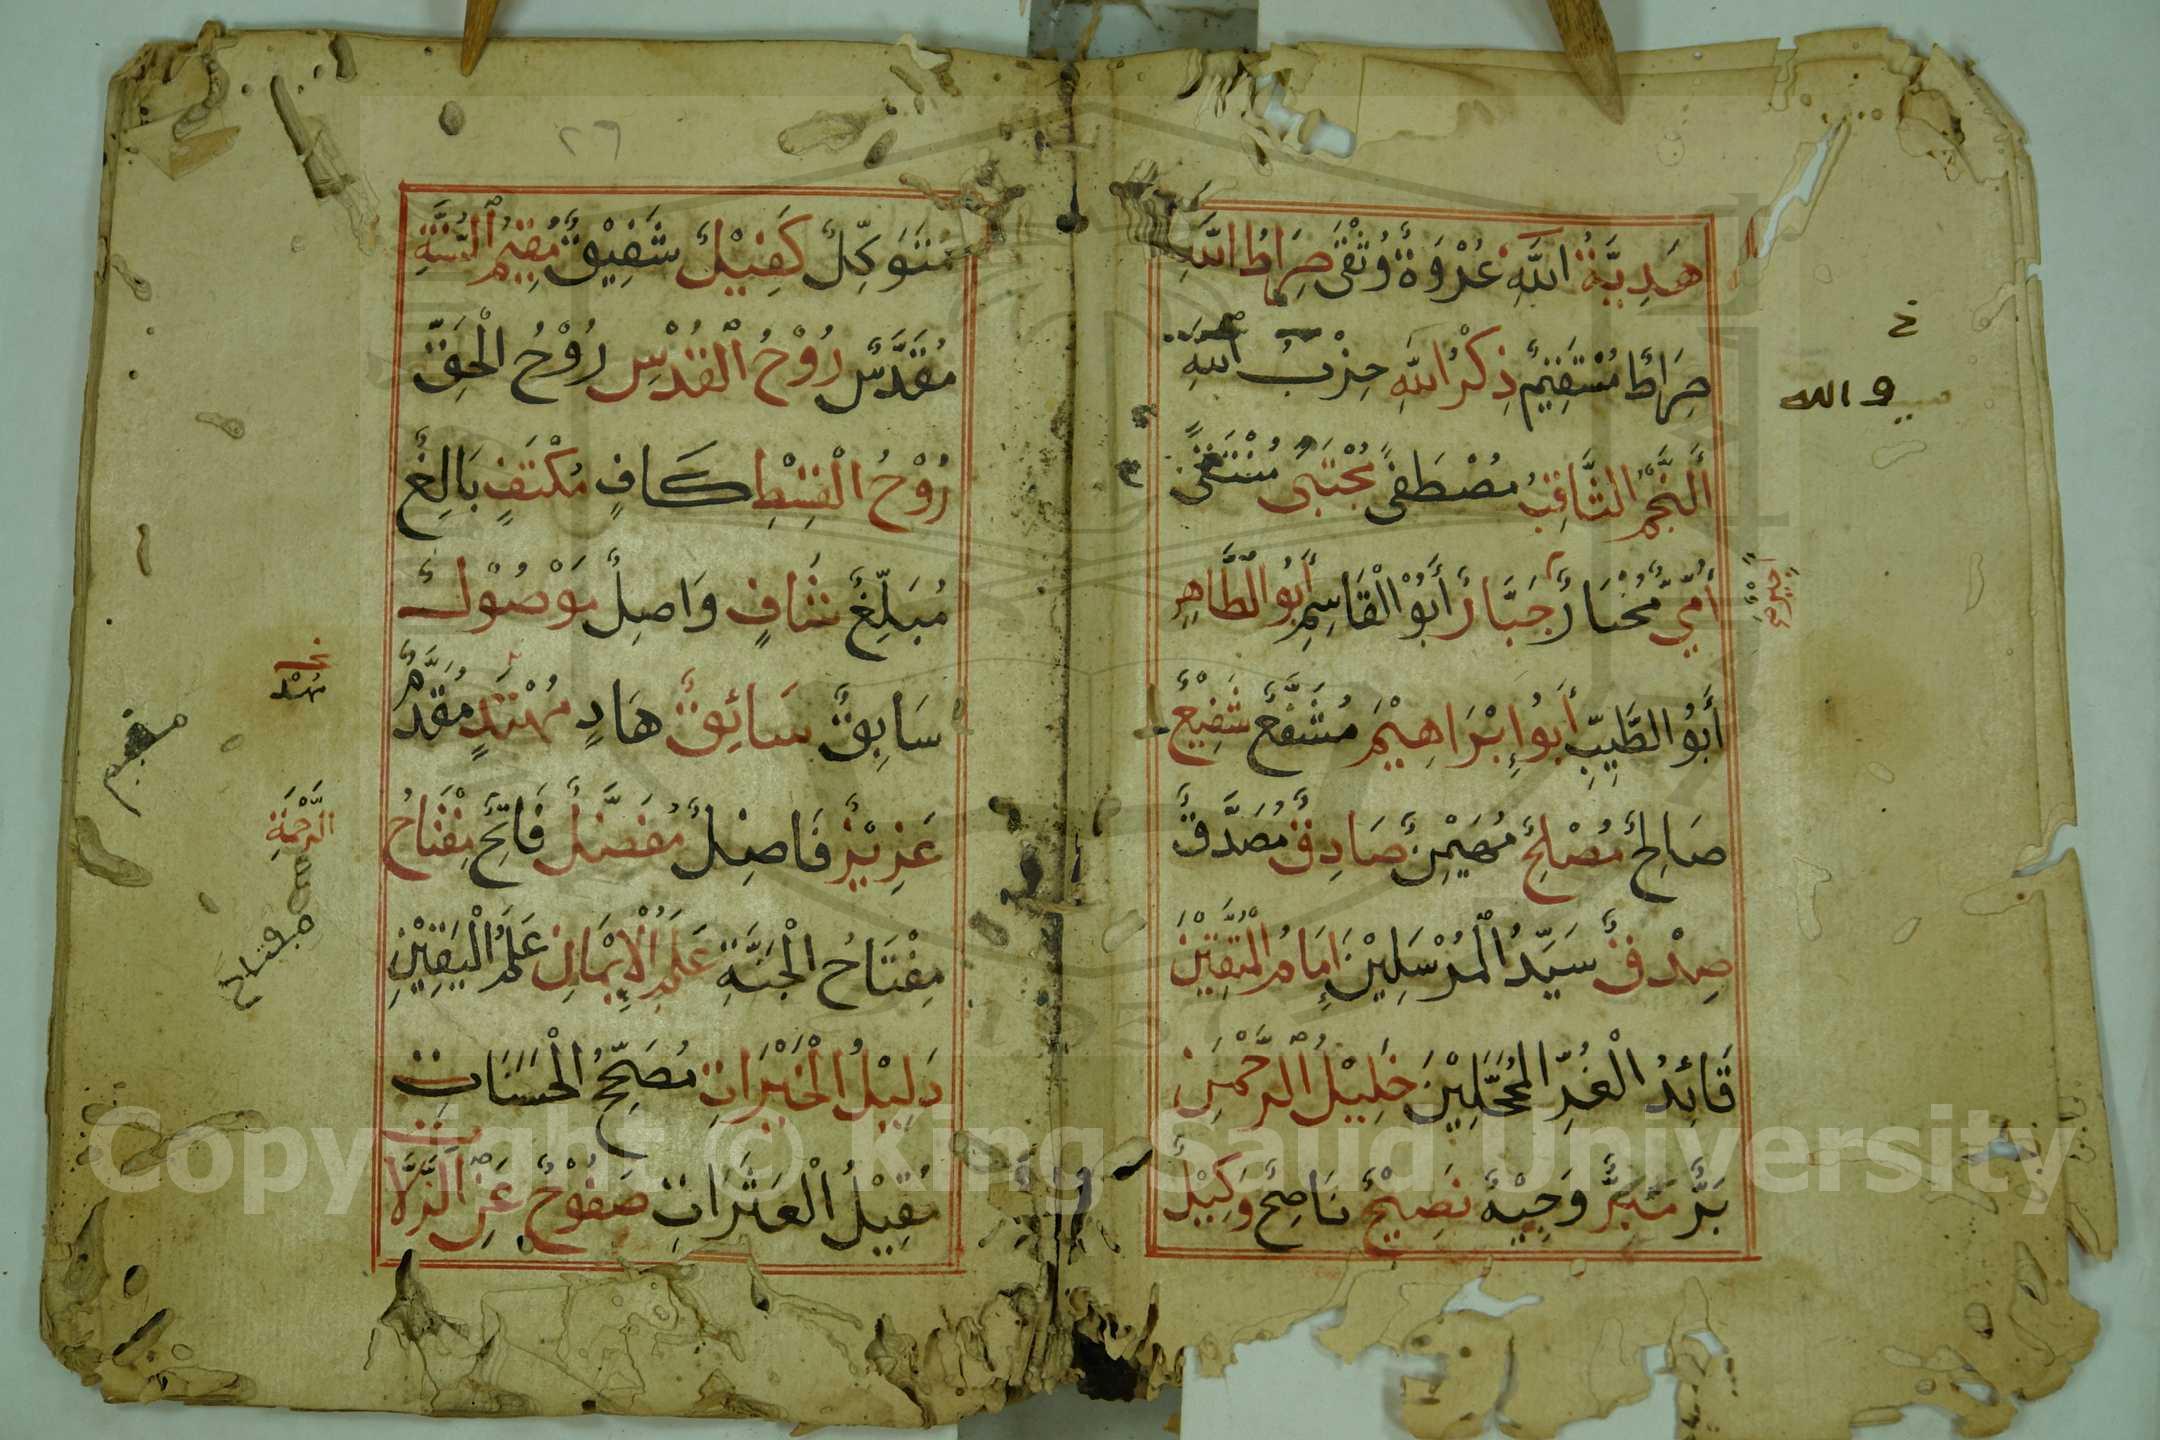 هَدِيَّةُ اللّٰهِ عُرْوَةٌ وُثْقٰى صِرَاطُ اللّٰهِ
صِرَاطٌ مُسْتَقِيْمٌ ذِكْرُ اللّٰهِ حِزْبُ اللّٰهِ
اَلنَّجْمُ الثَّاقِبُ مُصْطَفًى مُجْتَبًى مُنْتَقًى
أُمِّيٌّ مُخْتَارٌ جَبَّارٌ أَبُو الْقَاسِمِ أَبُو الطَّاهِرِ
أَبُو الطَّيِّبِ أَبُو إِبْرَاهِيْمَ مُشَفَّعٌ شَفِيْعٌ
صَالِحٌ مُصْلِحٌ مُهَيْمِنٌ صَادِقٌ مُصَدَّقٌ
صِدْقٌ سَيِّدُ الْمُرْسَلِيْنَ إِمَامُ الْمُتَّقِيْنَ
قَائِدُ الْغُرِّ الْمُحَجَّلِيْنَ خَلِيْلُ الرَّحْمٰنِ
بَرٌّ مَبَرٌّ وَجِيْهٌ نَصِيْحٌ نَاصِحٌ وَكِيْلٌ
خ
و الله
٢٦
مُتَوَكِّلٌ كَفِيْلٌ شَفِيْقٌ مُقِيْمُ السُّنَّةِ
مُقَدَّسٌ رُوْحُ الْقُدْسِ رُوْحُ الْحَقِّ
رُوْحُ الْقِسْطِ كَافٍ مُكْتَفٍ بَالِغٌ
مُبَلِّغٌ شَافٍ وَاصِلٌ مَوْصُوْلٌ
سَابِقٌ سَائِقٌ هَادٍ مُهْتَدٍ مُقَدَّمٌ
عَزِيْزٌ فَاضِلٌ مُفَضَّلٌ فَاتِحٌ مِفْتَاحُ
مِفْتَاحُ الْجَنَّةِ عَلَمُ الْإِيْمَانِ عَلَمُ الْيَقِيْنِ
دَلِيْلُ الْخَيْرَاتِ مُصَحِّحُ الْحَسَنَاتِ
مُقِيْلُ الْعَثَرَاتِ صَفُوْحٌ عَنِ الزَّلَّاتِ
الرَّحْمَةِ
مفتاح
Copyright © King Saud University